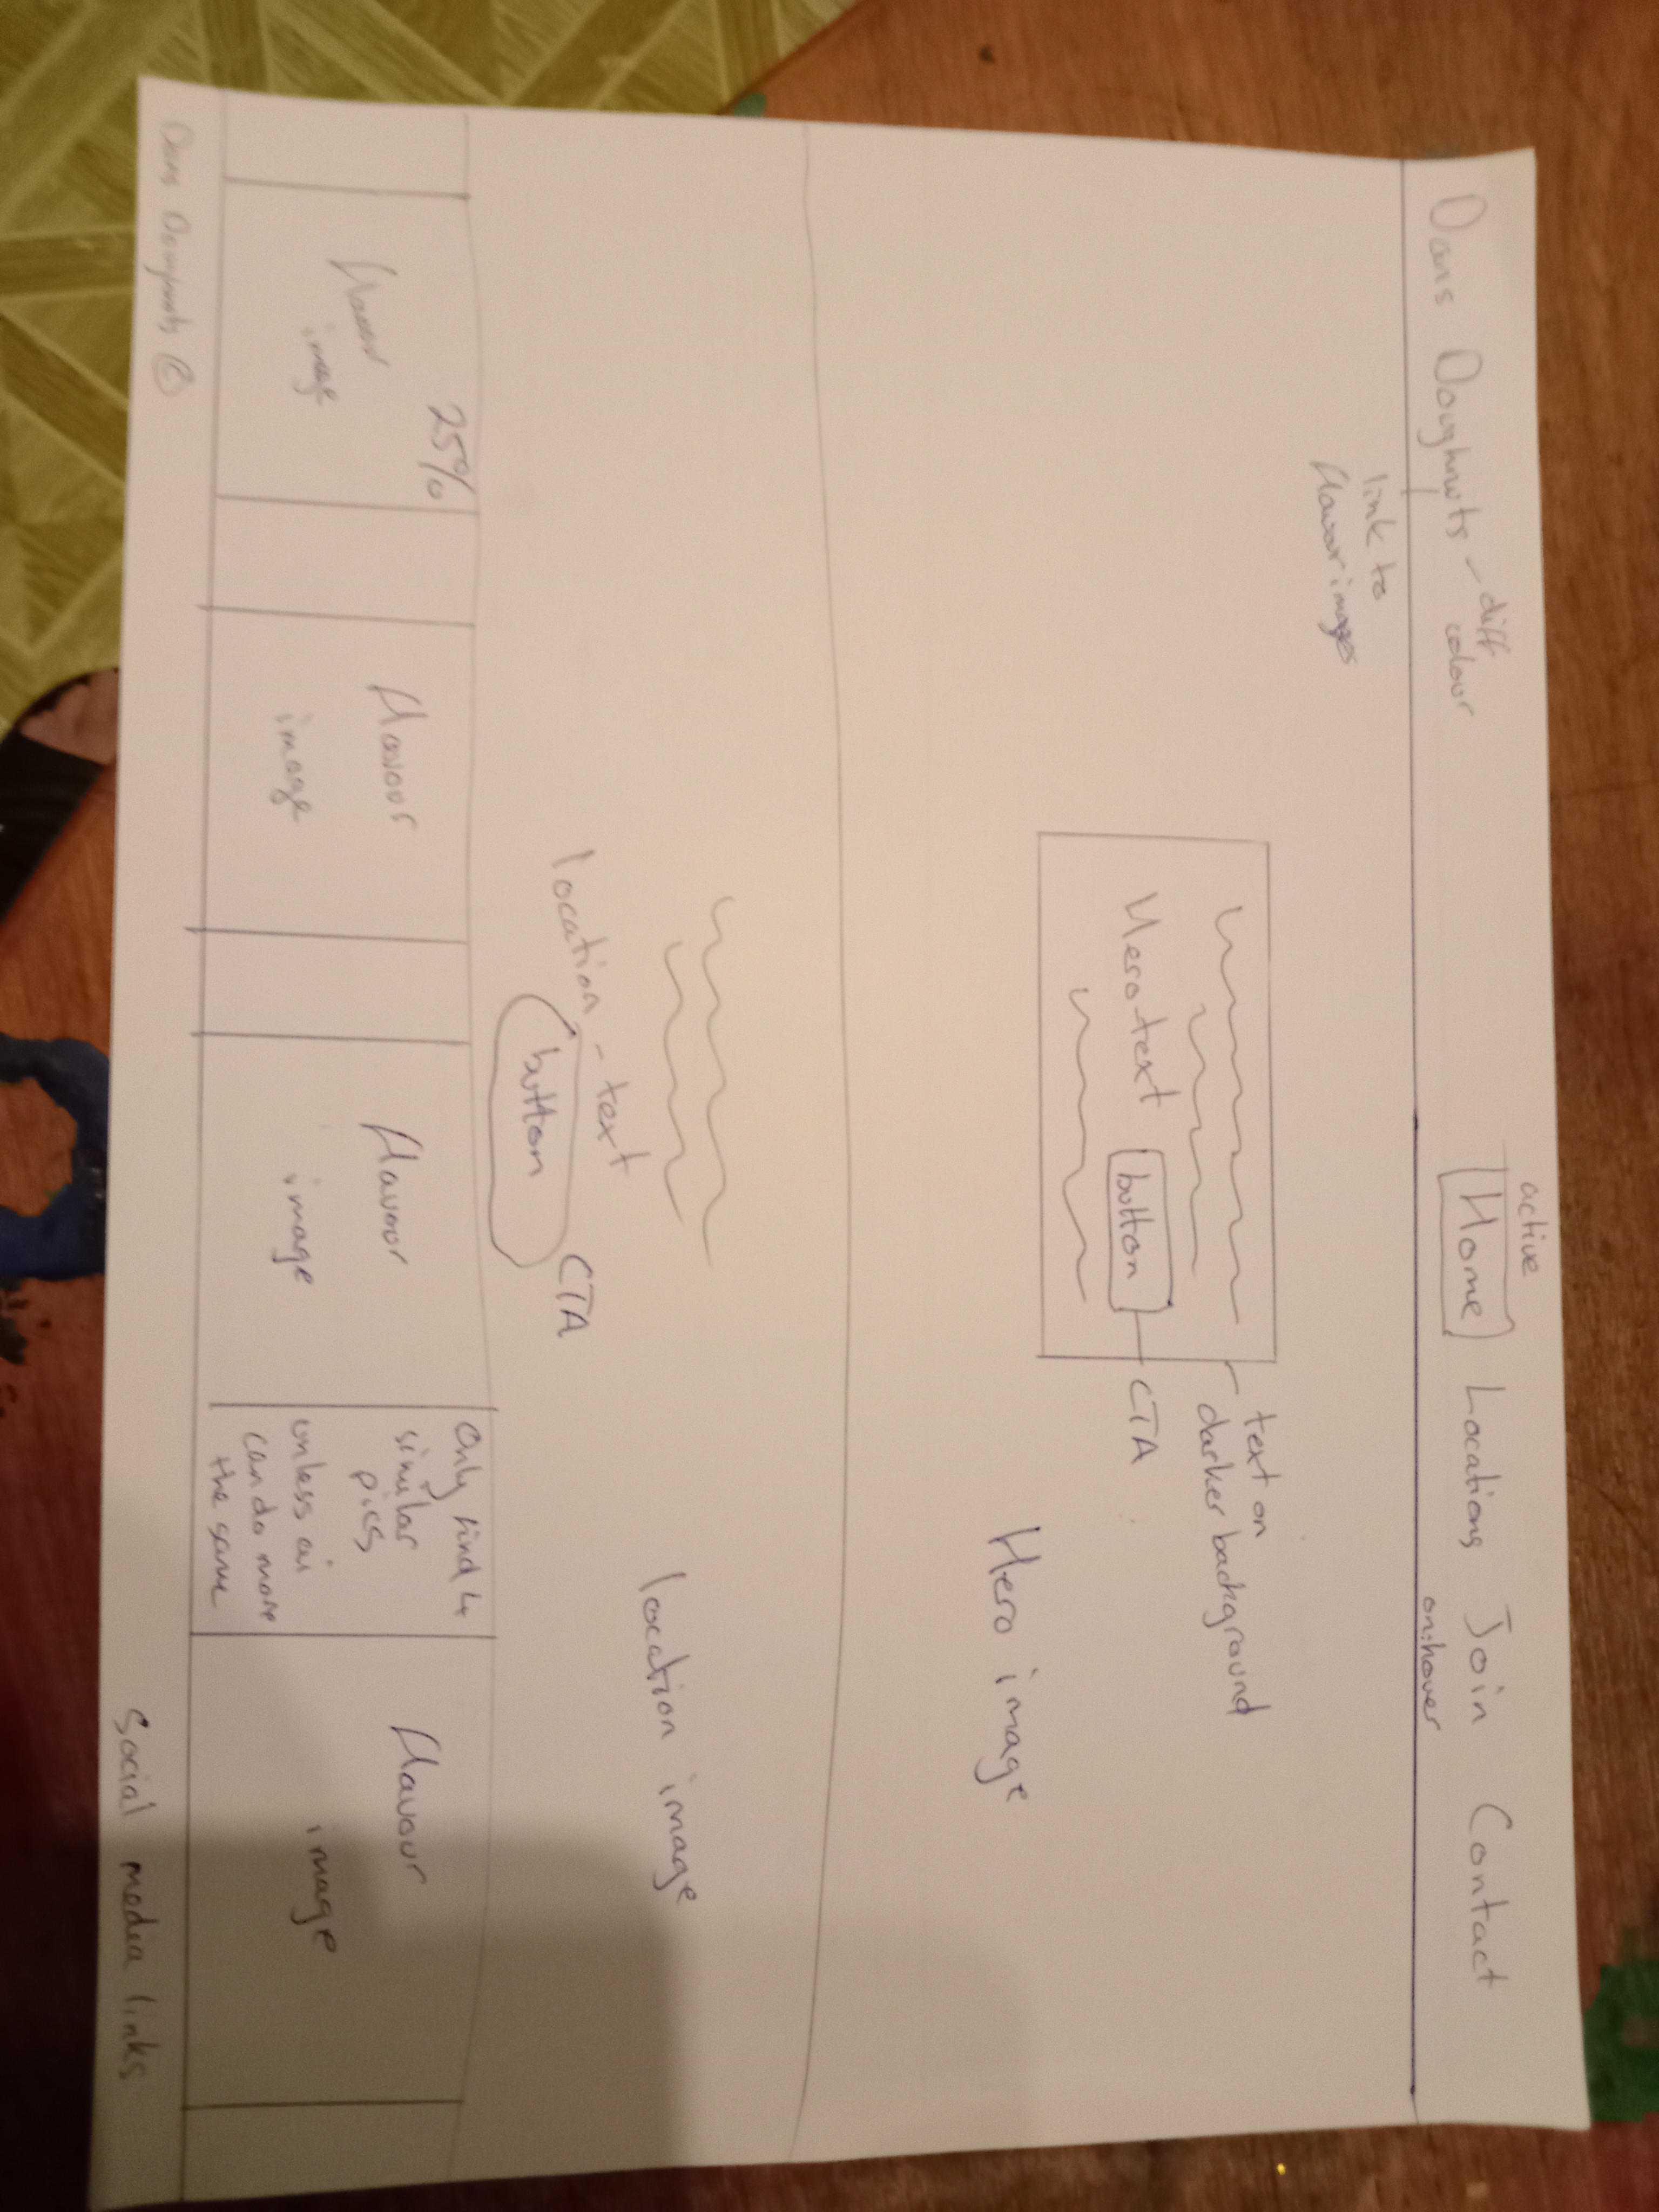 active
Dans Doughnuts - diff
colour
Home Locations Join Contact
on:hover
link to
flavour images
Hero text button
text on
darker background
CTA
Hero image
location - text
button
CTA
location image
25%
flavour
image
flavour
image
flavour
image
Only find 4
similar
pics
unless ai
can do more
the same
flavour
image
Dans Doughnuts ©
Social media links